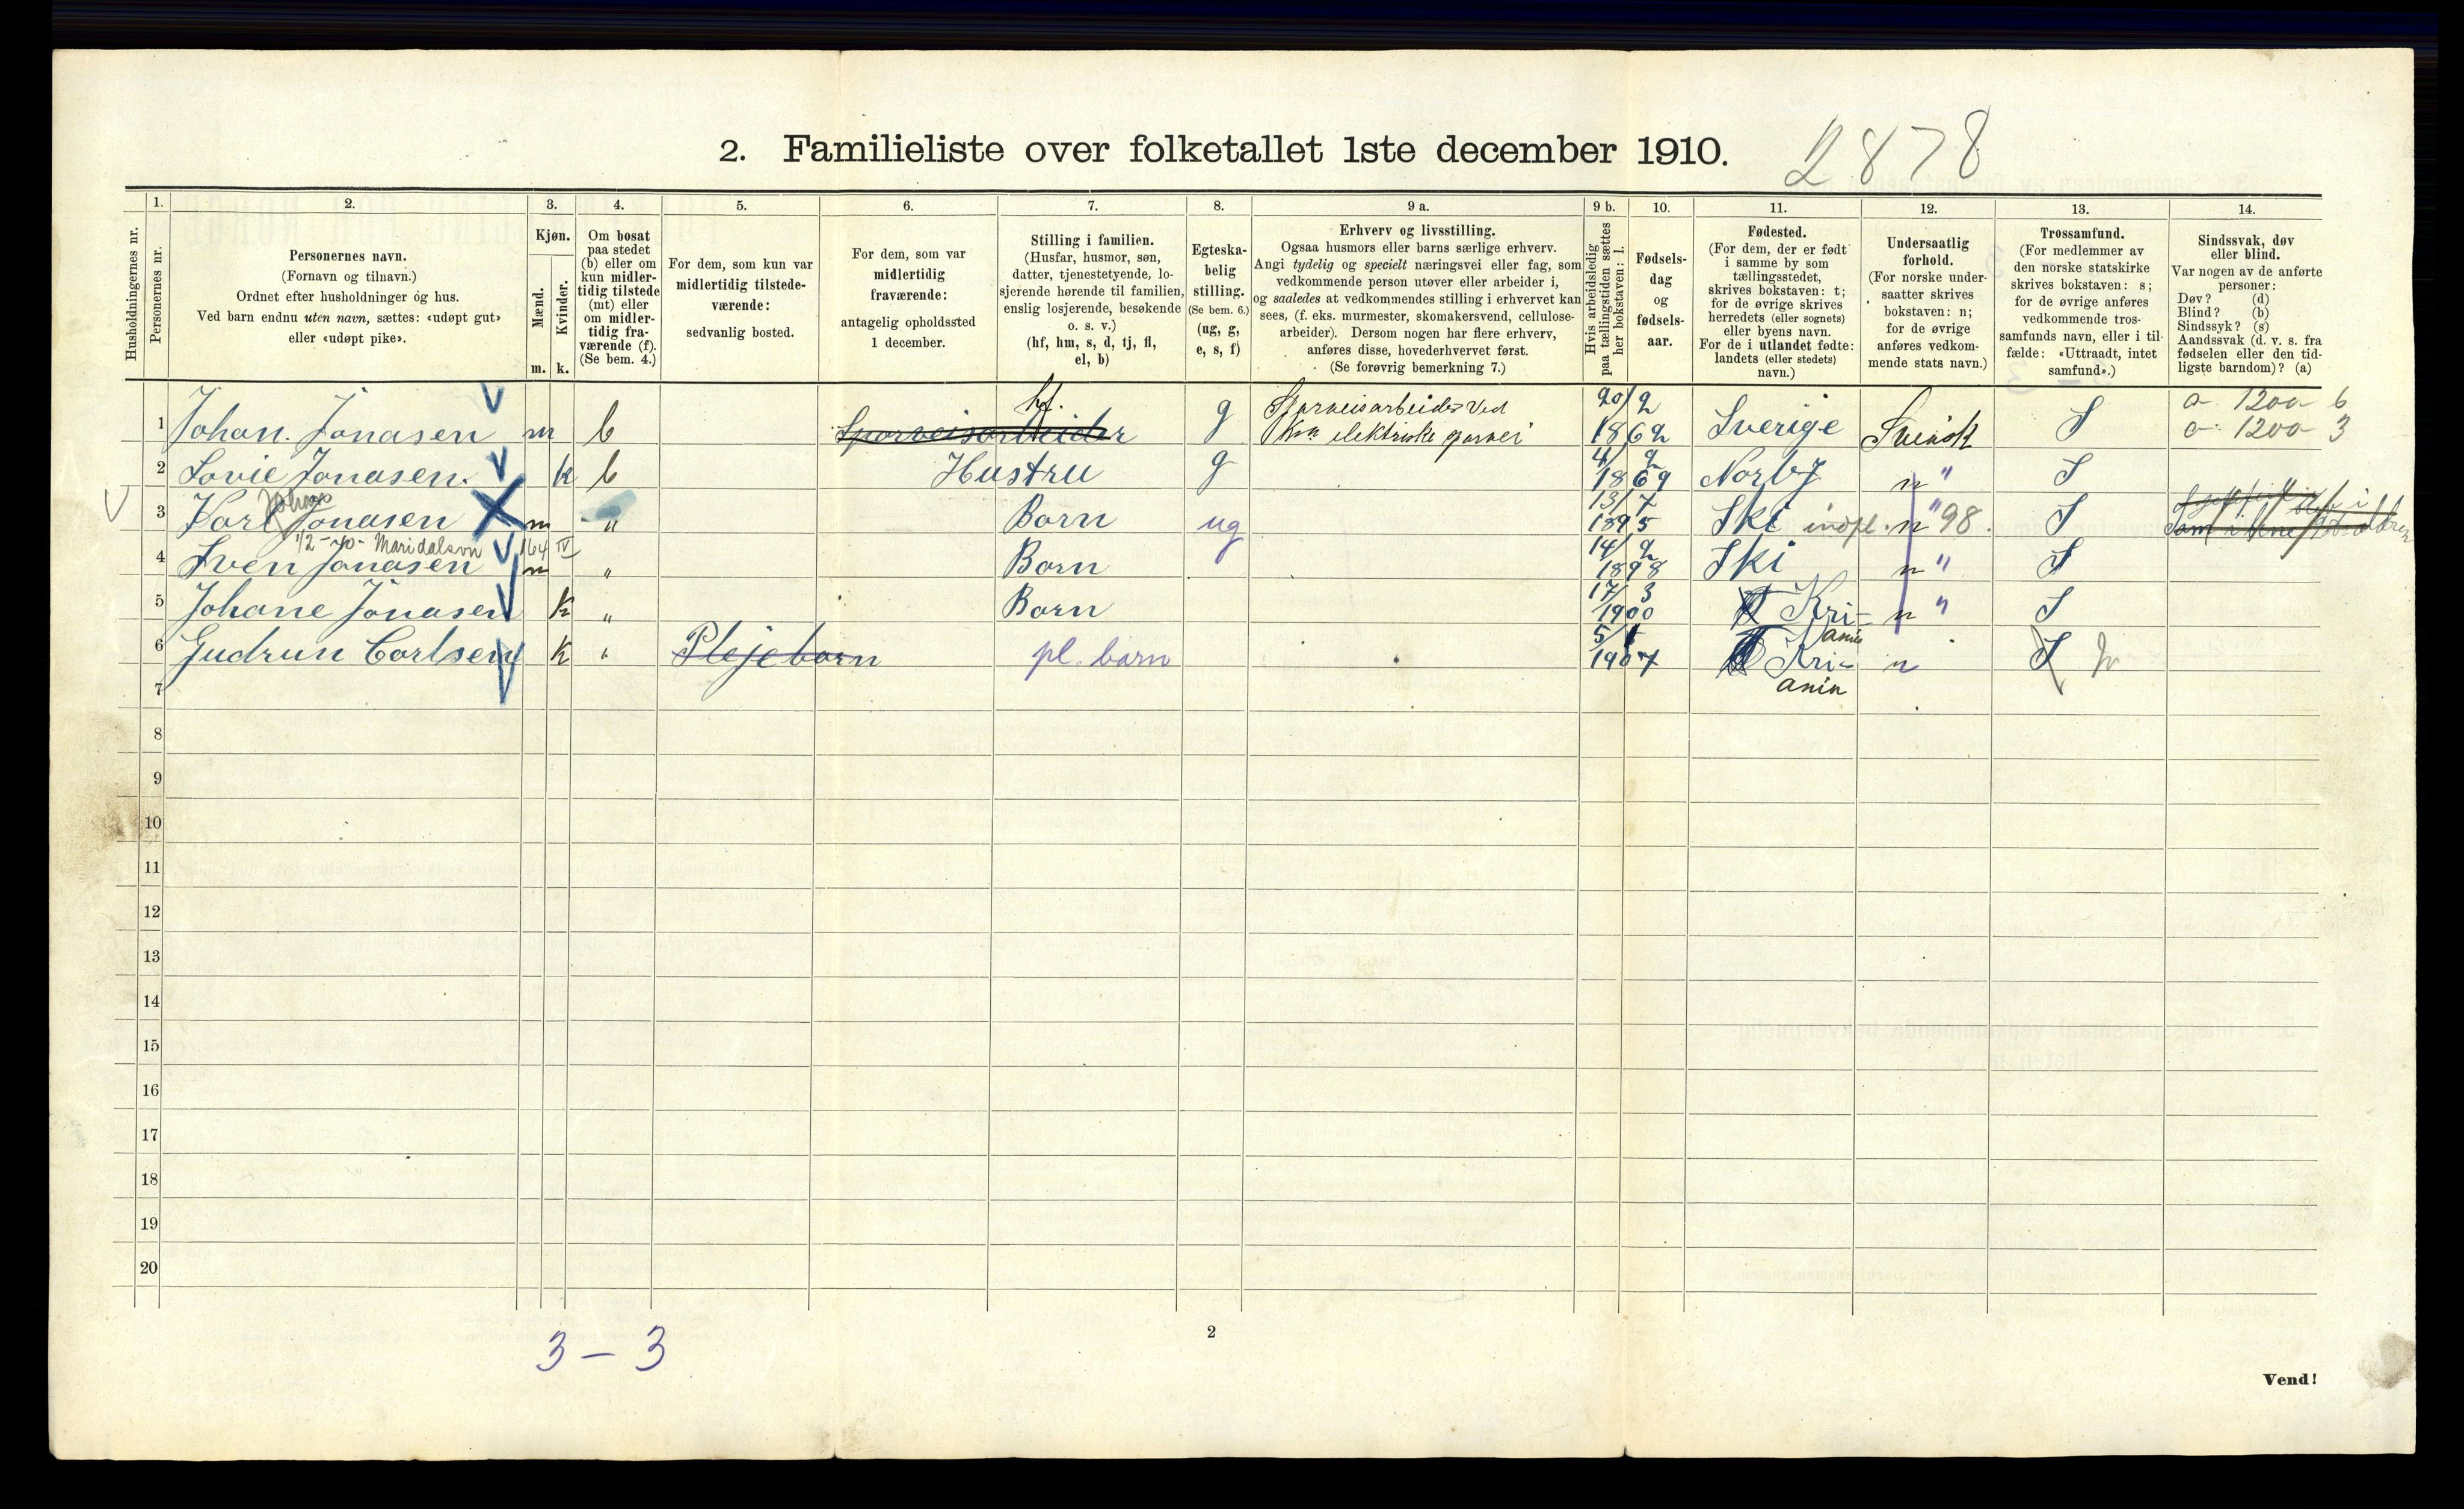 2. Familieliste over folketallet 1ste december 1910. 2878
Husholdningernes nr.
1. Personernes nr.
2. Personernes navn.
(Fornavn og tilnavn.)
Ordnet efter husholdninger og hus.
Ved barn endnu uten navn, sættes: «udøpt gut»
eller «udøpt pike».
3. Kjøn.
Mænd. m.
Kvinder. k.
4. Om bosat
paa stedet
(b) eller om
kun midler-
tidig tilstede
(mt) eller
om midler-
tidig fra-
værende (f).
(Se bem. 4.)
5. For dem, som kun var
midlertidig tilstede-
værende:
sedvanlig bosted.
6. For dem, som var
midlertidig
fraværende:
antagelig opholdssted
1 december.
7. Stilling i familien.
(Husfar, husmor, søn,
datter, tjenestetyende, lo-
sjerende hørende til familien,
enslig losjerende, besøkende
o. s. v.)
(hf, hm, s, d, tj, fl,
el, b)
8. Egteska-
belig
stilling.
(Se bem. 6.)
(ug, g,
e, s, f)
9 a. Erhverv og livsstilling.
Ogsaa husmors eller barns særlige erhverv.
Angi tydelig og specielt næringsvei eller fag, som
vedkommende person utøver eller arbeider i,
og saaledes at vedkommendes stilling i erhvervet kan
sees, (f. eks. murmester, skomakersvend, cellulose-
arbeider). Dersom nogen har flere erhverv,
anføres disse, hovederhvervet først.
(Se forøvrig bemerkning 7.)
9 b. Hvis arbeidsledig
paa tællingstiden sættes
her bokstaven: l.
10. Fødsels-
dag
og
fødsels-
aar.
11. Fødested.
(For dem, der er født
i samme by som
tællingsstedet,
skrives bokstaven: t;
for de øvrige skrives
herredets (eller sognets)
eller byens navn.
For de i utlandet fødte:
landets (eller stedets)
navn.)
12. Undersaatlig
forhold.
(For norske under-
saatter skrives
bokstaven: n;
for de øvrige
anføres vedkom-
mende stats navn.)
13. Trossamfund.
(For medlemmer av
den norske statskirke
skrives bokstaven: s;
for de øvrige anføres
vedkommende tros-
samfunds navn, eller i til-
fælde: «Uttraadt, intet
samfund».)
14. Sindssvak, døv
eller blind.
Var nogen av de anførte
personer:
Døv? (d)
Blind? (b)
Sindssyk? (s)
Aandssvak (d. v. s. fra
fødselen eller den tid-
ligste barndom)? (a)
1 Johan. Jonasen m b Sporveisarbeider hf. g Sporveisarbeider ved elektriske 20/2 1862 Sverige Svensk S 1200 6
1200 3
2 Lovie Jonasen. k b Hustru g 4/2 1869 Norby n " S
3 Karl Johan Jonasen m " Born ug 13/7 1895 Ski indfl. n " 98. S
1/2-10- Maridalsvn 164 IV
4 Sven Jonasen m " Born 14/2 1898 Ski n " S
5 Johane Jonasen K " Born 17/3 1900 Kri-ania n " S
6 Gudrun Carlsen K " Plejebarn pl. barn 5/1 1907 Kri-ania n S
7
8
9
10
11
12
13
14
15
16
17
18
19
20
3 – 3
2
Vend!